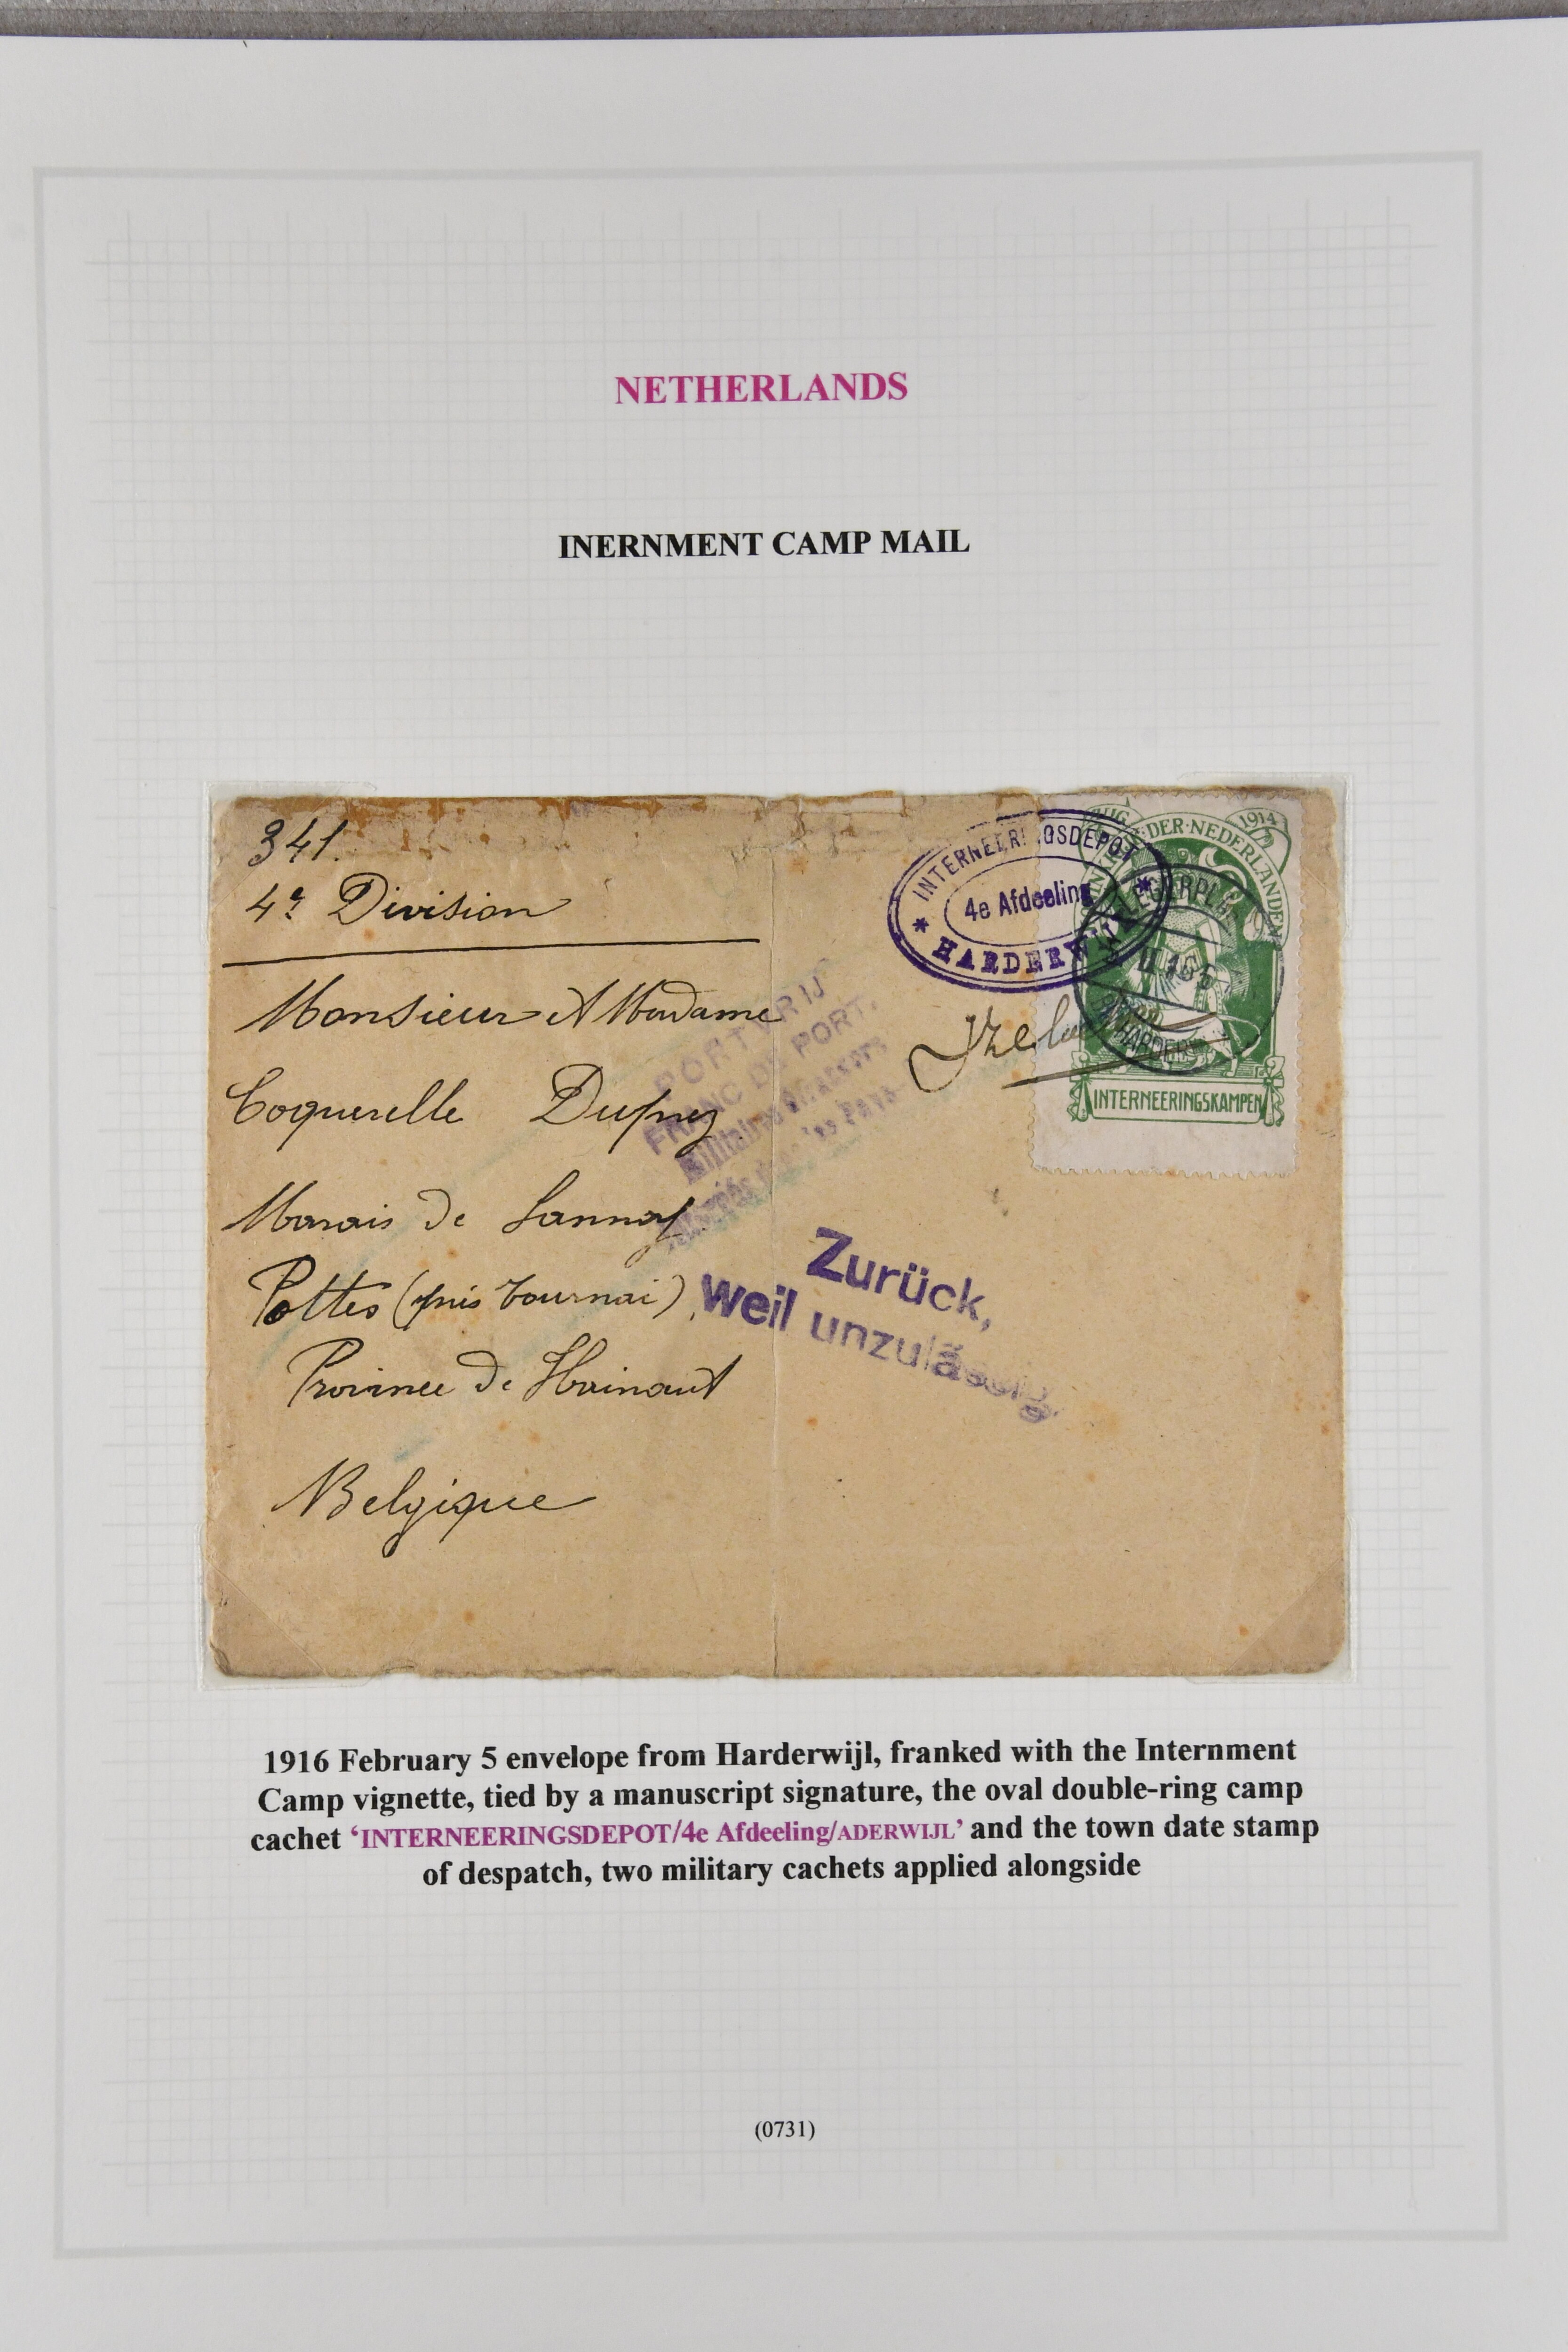 NETHERLANDS
INERNMENT CAMP MAIL
341.
4e Division
Monsieur et Madame
Coquerelle Duprez
Marais de Lannoy
Pottes (près Tournai)
Province de Hainaut
Belgique
PORTVRIJ
FRANC DE PORT.
Militaires
INTERNEERINGSDEPOT
4e Afdeeling
* HARDERWIJK *
DER·NEDERLANDEN
1914
HARDERW
INTERNEERINGSKAMPEN
Zurück,
weil unzulässig.
1916 February 5 envelope from Harderwijl, franked with the Internment
Camp vignette, tied by a manuscript signature, the oval double-ring camp
cachet ‘INTERNEERINGSDEPOT/4e Afdeeling/ADERWIJL’ and the town date stamp
of despatch, two military cachets applied alongside
(0731)